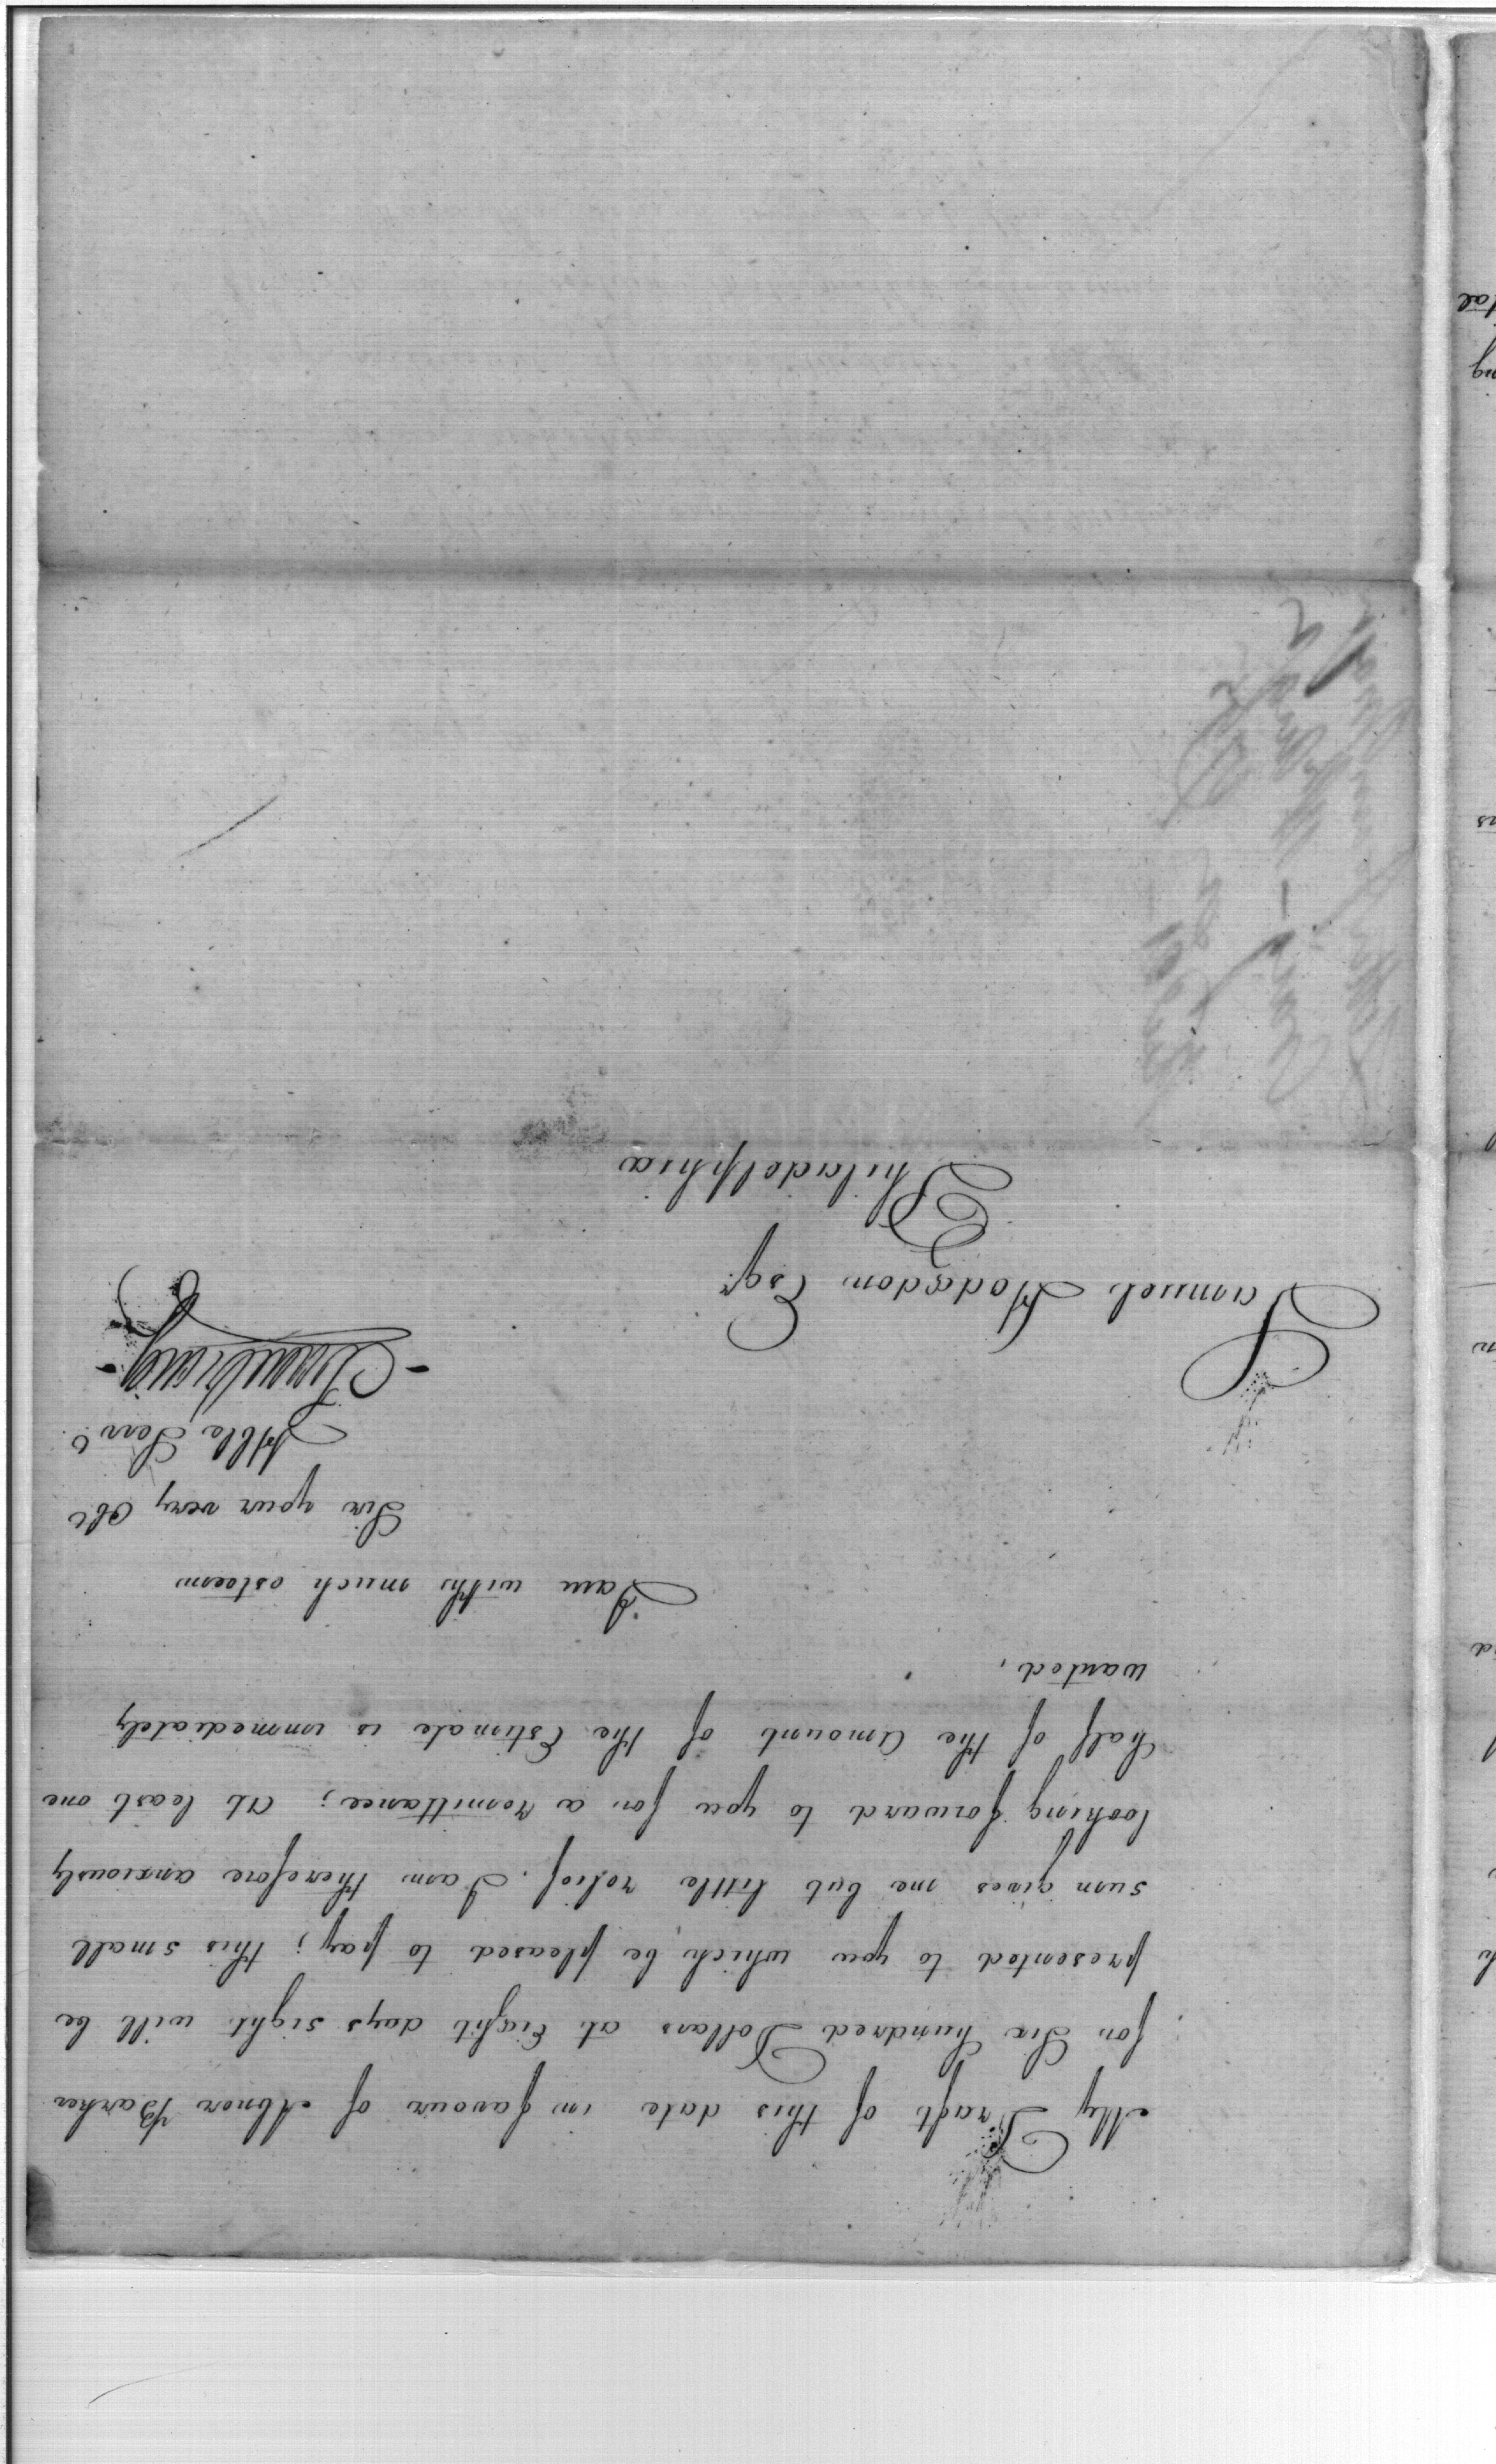 My Draft of this date in favour of Abner Barker
for Six hundred Dollars at Eight days sight will be
presented to you which be pleased to pay; this small
sum gives me but little relief. I am therefore anxiously
looking forward to you for a remittance; at least one
half of the amount of the Estimate is immediately
wanted,
I am with much esteem
Sir your very Obt
Hble Servt
Samuel Hodgdon Esqr
Philadelphia